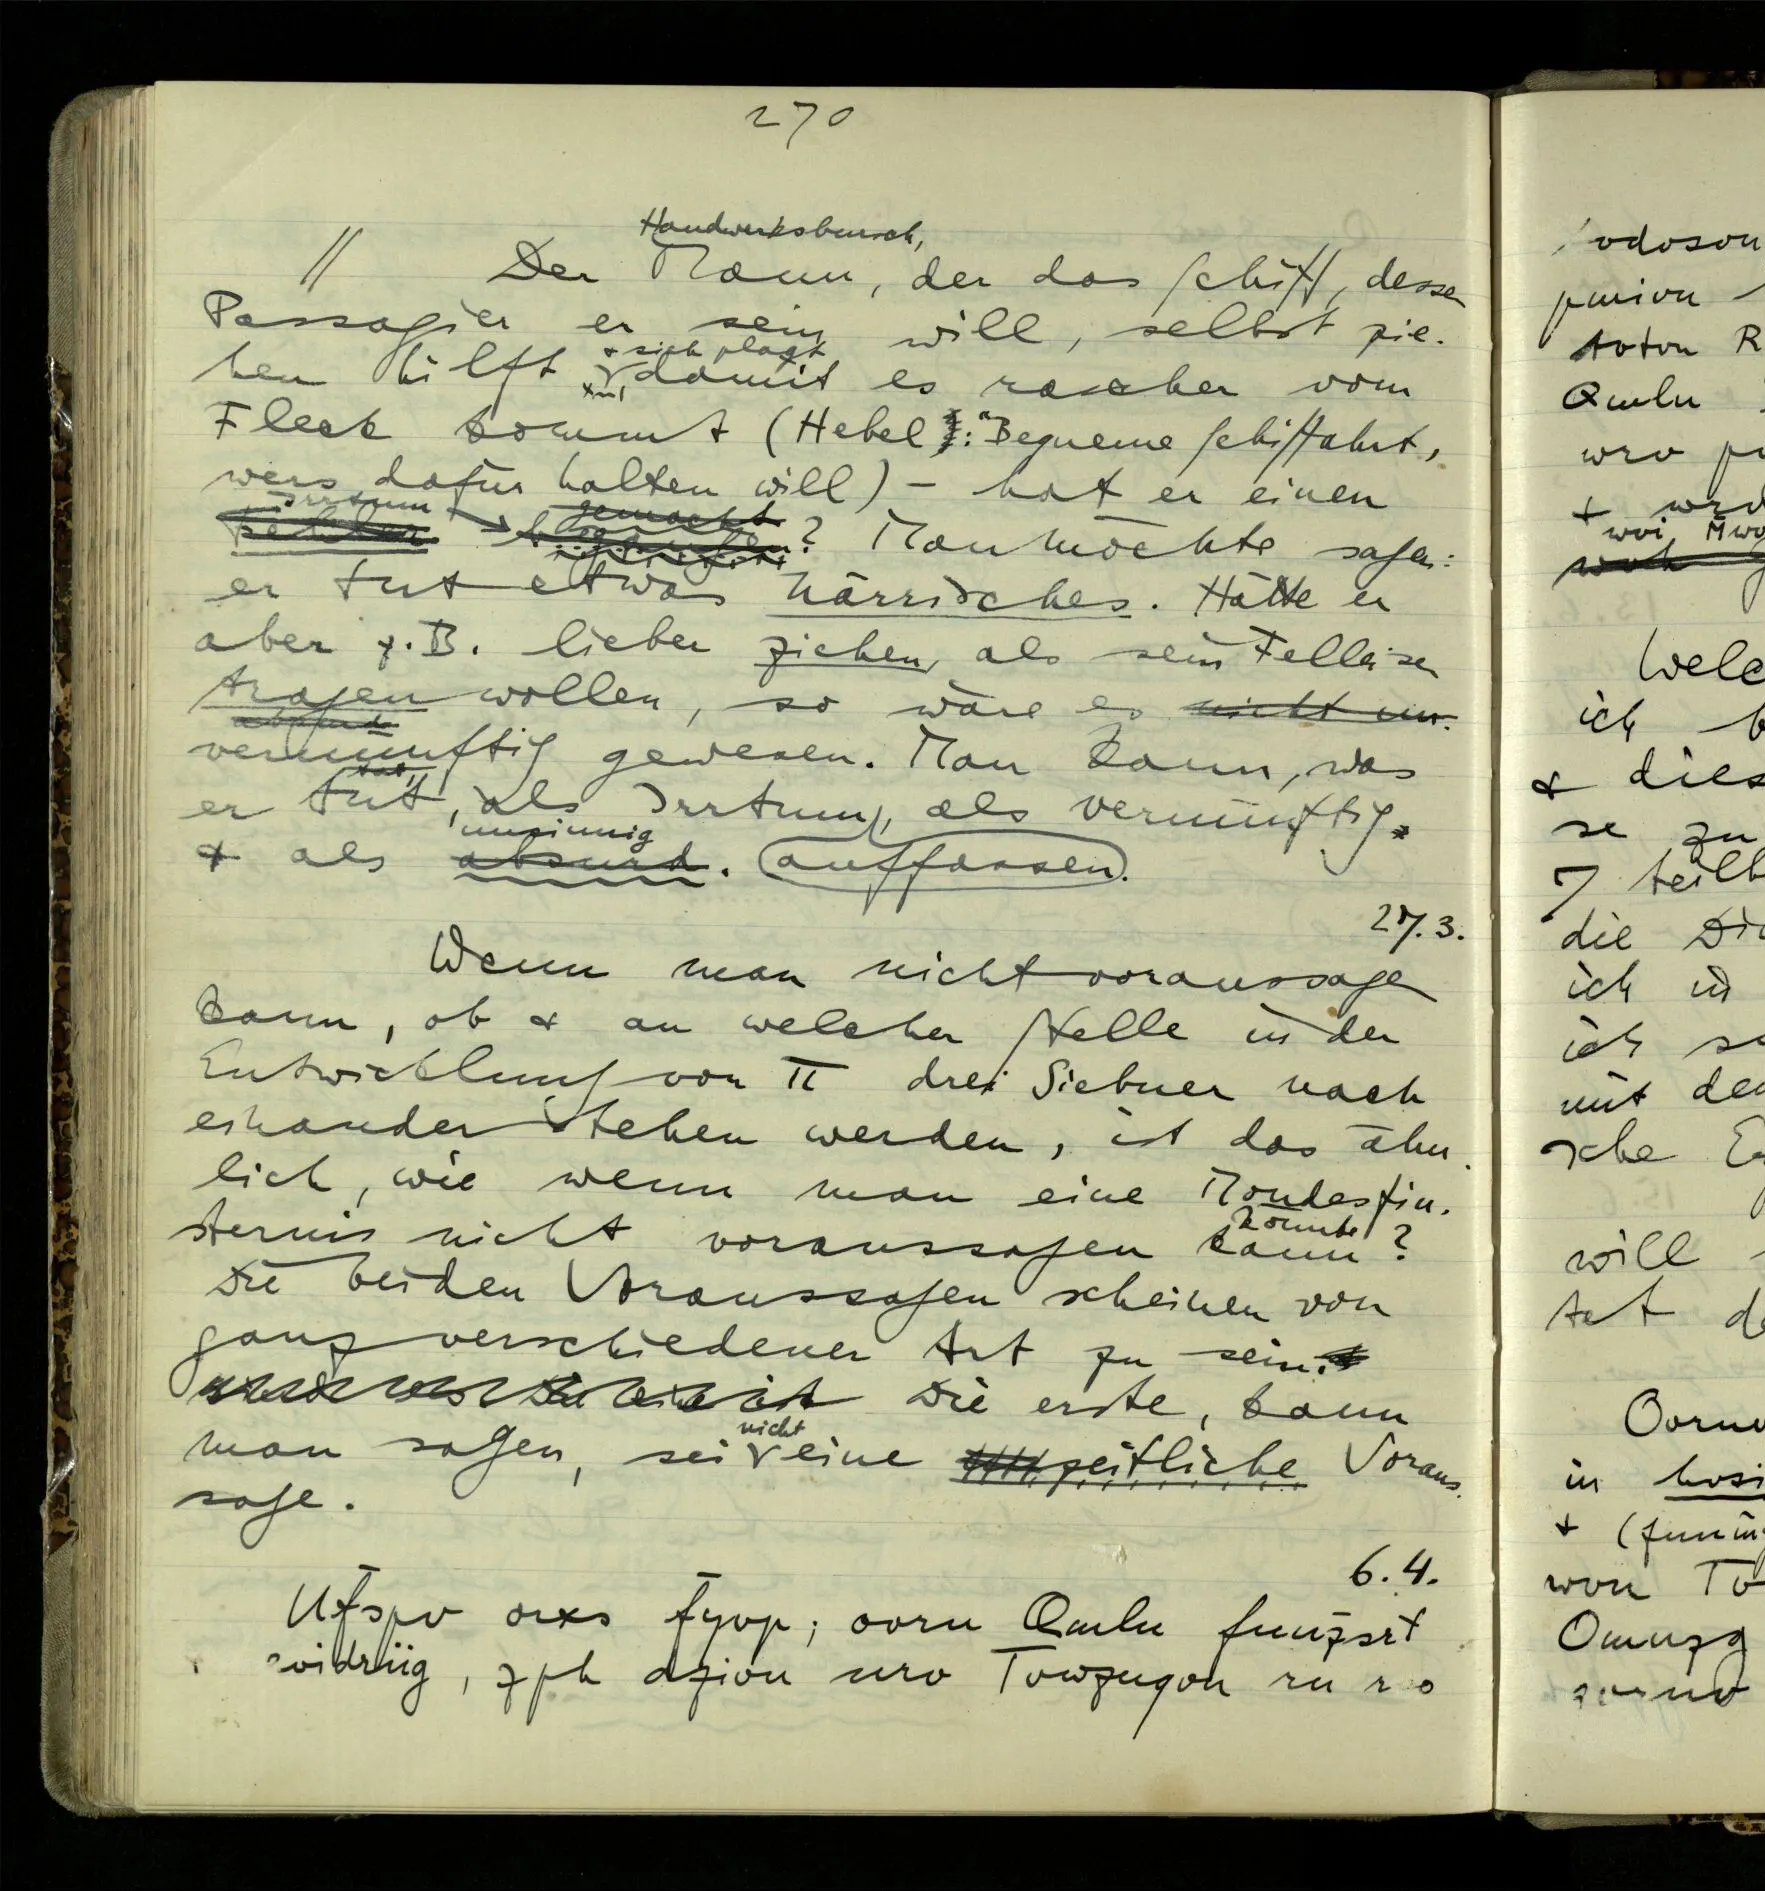 270
Handwerksbursch,
// Der Mann, der das Schiff, dessen
Passagier er sein will, selbst zie-
+ sich plagt
hen hilft damit es rascher vom
Fleck kommt (Hebel: "Bequeme Schiffahrt,
wers dafür halten will) – hat er einen
Irrtum gemacht
Fehler begangen? Man möchte sagen:
er tut etwas närrisches. Hätte er
aber z.B. lieber ziehen, als sein Felleisen
tragen wollen, so wäre es nicht un-
absurd
vernünftig gewesen. Man kann, was
tat,
er tut, als Irrtum, als vernünftig,
unsinnig
+ als absurd. auffassen.
27.3.
Wenn man nicht voraussagen
kann, ob + an welcher Stelle in der
Entwicklung von π drei Siebner nach
einander stehen werden, ist das ähn-
lich, wie wenn man eine Mondesfin-
könnte
sternis nicht voraussagen kann?
Die beiden Voraussagen scheinen von
ganz verschiedener Art zu sein.
Die erste, kann
nicht
man sagen, sei eine zeitliche Voraus-
sage.
6.4.
Ufspv orxs fyvp; oorn Qmln funzsrt
widrüg, zph azion nro Towzugon rn r o
odoson
pmion
toton R
Qmln
wro
+
woi
Welc
ich b
+ dies
se zu
7 teilb
die
ich in
ich
mit de
sche
will
tut d
Oorn
in
+
won
Omuzg